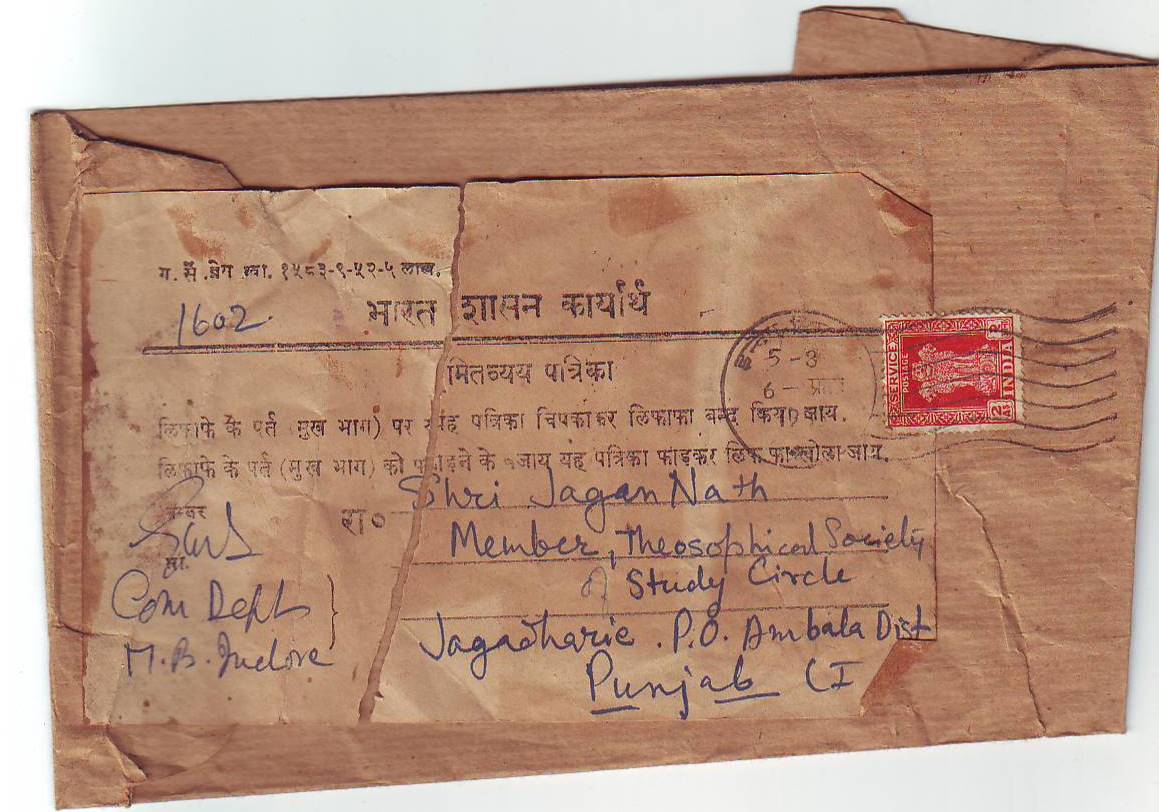 ग. सें. प्रेग ग्वा. १५८३-९-५२-५ लाख.
1602.
भारत शासन कार्यार्थ
मितव्यय पत्रिका
लिफाफे के पर्त (मुख भाग) पर यह पत्रिका चिपकाकर लिफाफा बन्द किया जाय.
लिफाफे के पर्त (मुख भाग) को फाड़ने के बजाय यह पत्रिका फाडकर लिफाफा खोला जाय.
5-3
6-
SERVICE
POSTAGE
INDIA
2
AS
नम्बर
रा०
Shri Jagan Nath
Member, Theosophical Society
of Study Circle
Jagadharie. P.O. Ambala Dist
Punjab (I
Com Deptt
M.B. Indore